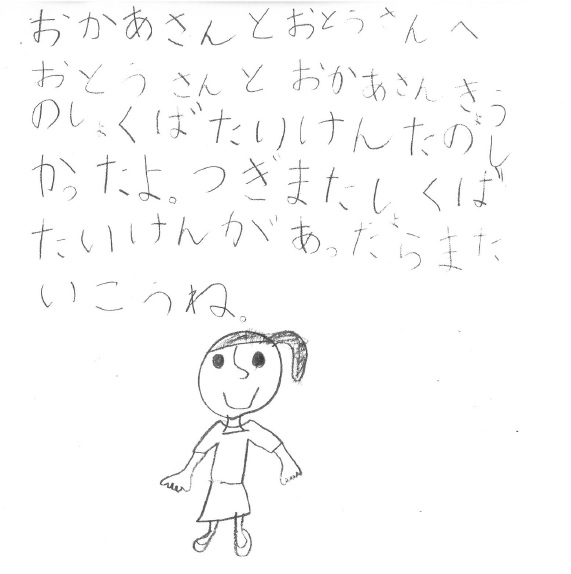 おかあさんとおとうさんへ
おとうさんとおかあさんきょう
のしょくばたいけんたのし
かったよ。つぎまたしょくば
たいけんがあったらまた
いこうね。